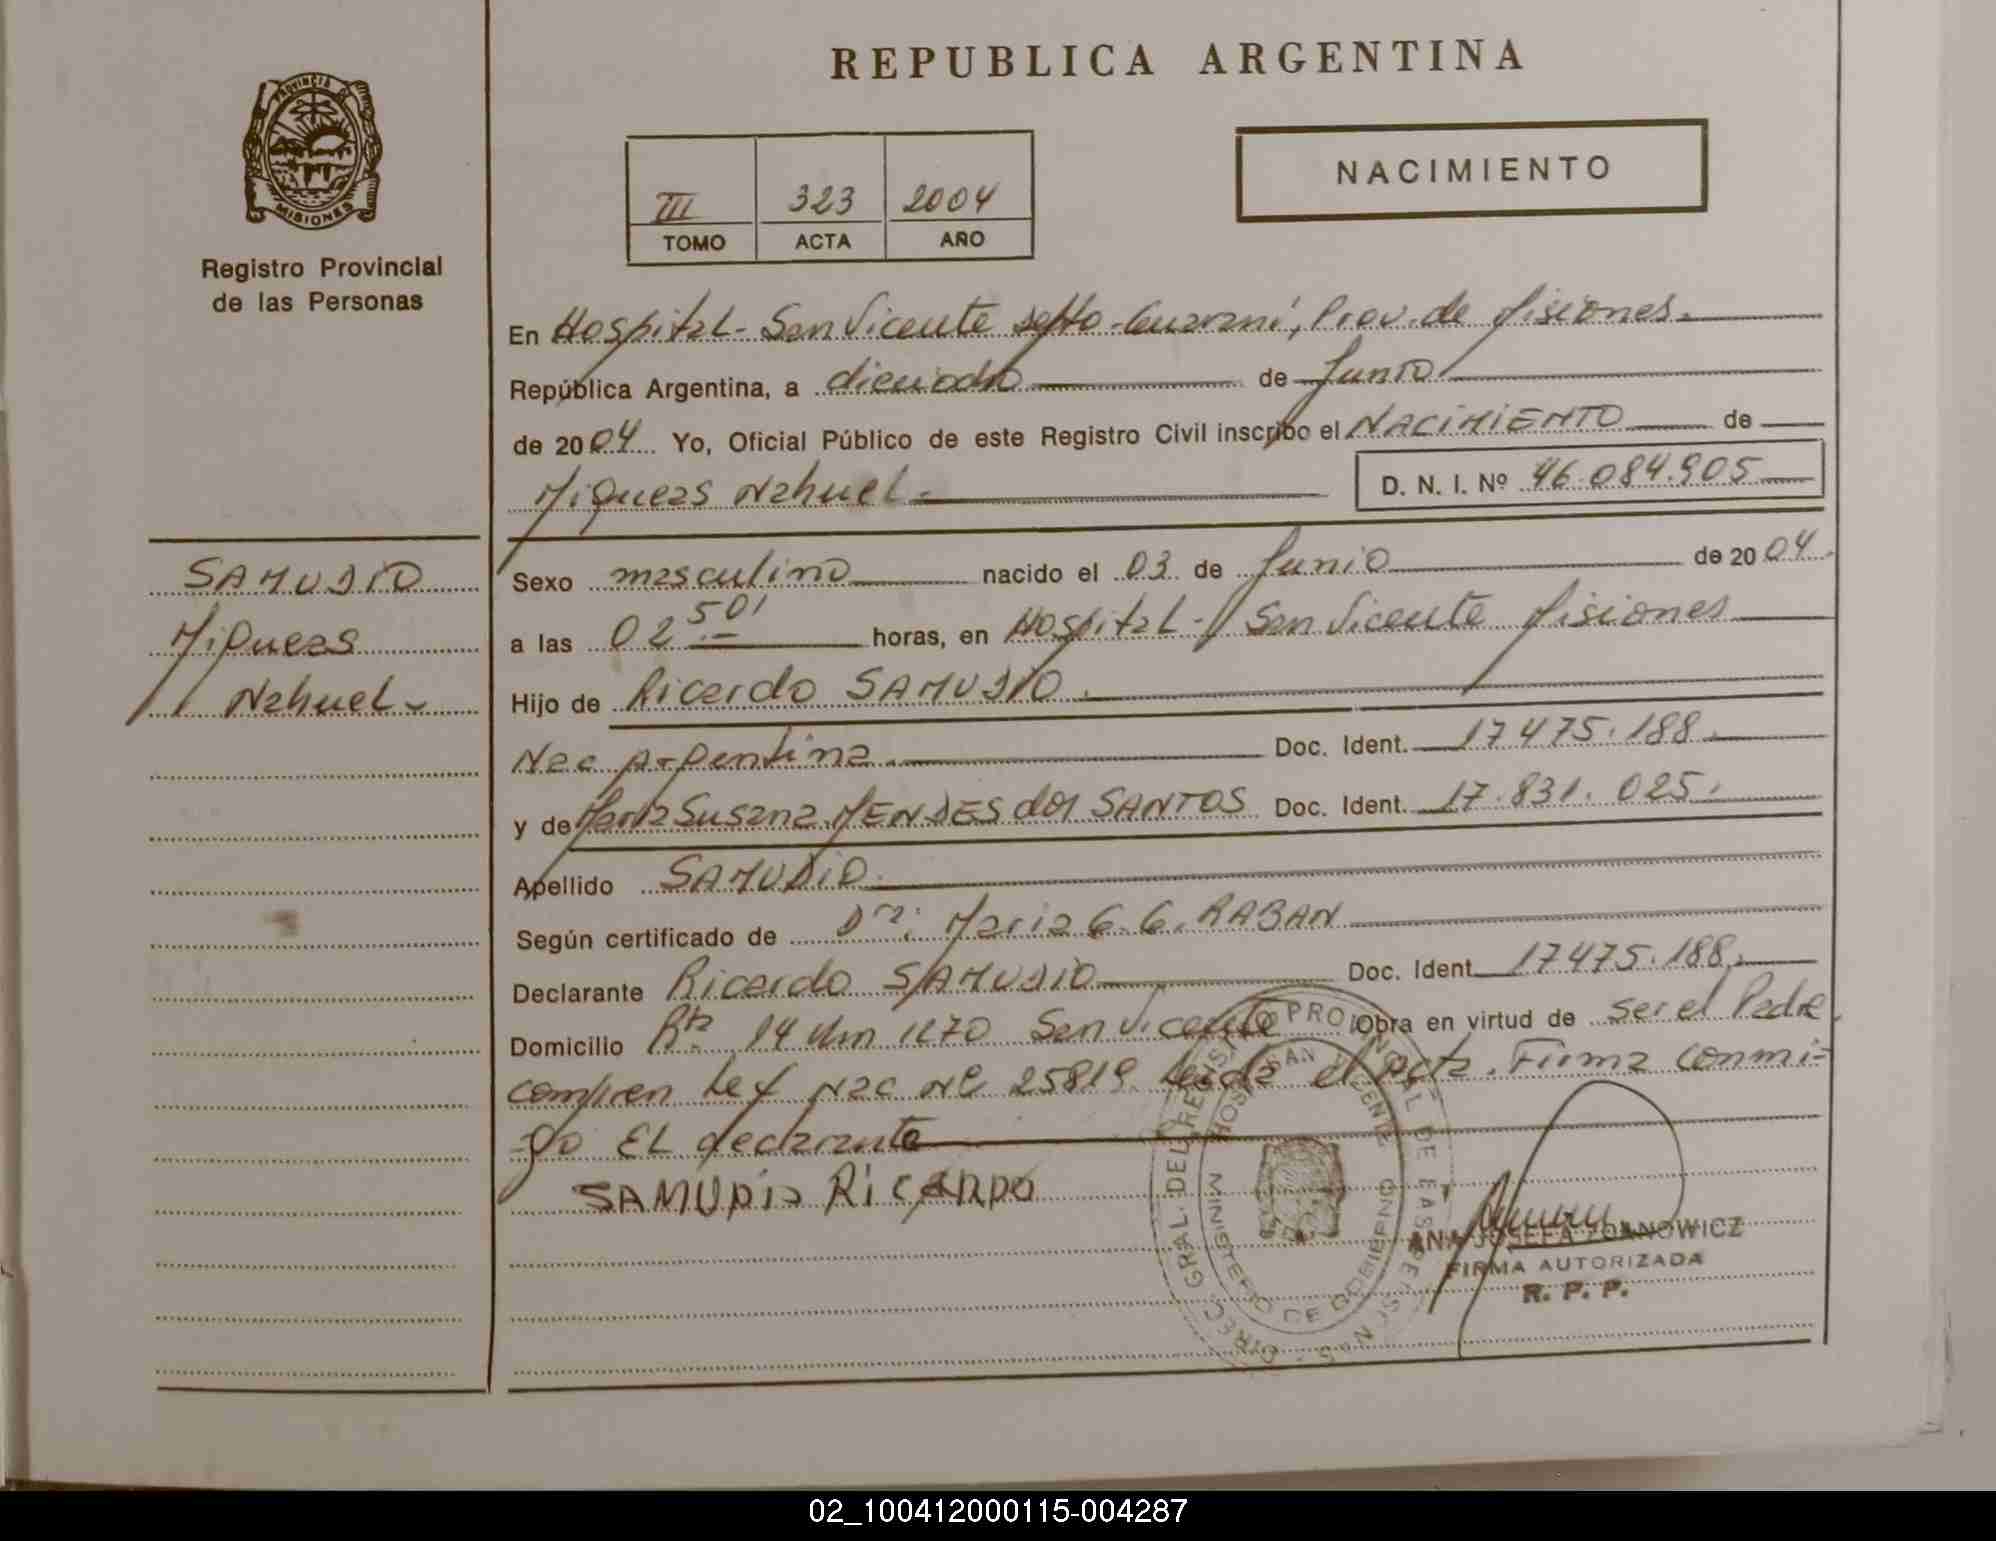 REPUBLICA ARGENTINA
PROVINCIA DE
MISIONES
Registro Provincial
de las Personas
III 323 2004
TOMO ACTA AÑO
NACIMIENTO
En Hospital - San Vicente Depto - Guaraní, Prov. de Misiones.
República Argentina, a dieciocho de Junio
de 2004 Yo, Oficial Público de este Registro Civil inscribo el NACIMIENTO de
Miqueas Nahuel - D. N. I. Nº 46.084.905
SAMUDIO
Miqueas
Nahuel -
Sexo masculino nacido el 03 de Junio de 2004.
a las 02 50' horas, en Hospital - San Vicente Misiones
Hijo de Ricardo SAMUDIO.
Nac Argentina. Doc. Ident. 17475.188.
y de Maria Susana MENDES dos SANTOS Doc. Ident. 17.831.025.
Apellido SAMUDIO.
Según certificado de Dra: Maria G. G. RABAN
Declarante Ricardo SAMUDIO Doc. Ident. 17475.188.
Domicilio Rta. 14 Km 1270 San Vicente Obra en virtud de ser el Padre
compren Ley Nac Nº 25819. Leida el Acta. Firma conmi-
go EL declarante
SAMUDIO RiCARDO
DIREC. GRAL. DEL REGISTRO PROVINCIAL DE LAS PERSONAS
HOSP. SAN VICENTE
MINISTERIO DE GOBIERNO
ANA JOSEFA
FIRMA AUTORIZADA
R. P. P.
02_100412000115-004287